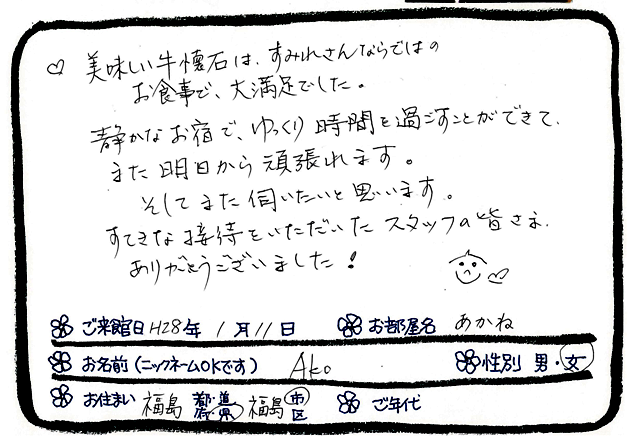 ♡ 美味しい牛懐石は、すみれさんならではの
お食事で、大満足でした。
静かなお宿で、ゆっくり時間を過ごすことができて、
また明日から頑張れます。
そしてまた伺いたいと思います。
すてきな接待をいただいたスタッフの皆さま、
ありがとうございました!
ご来館日 H28年 1月11日 お部屋名 あかね
お名前(ニックネームOKです) Ako 性別 男・女
お住まい 福島 都・道・府・県 福島 市・区 ご年代